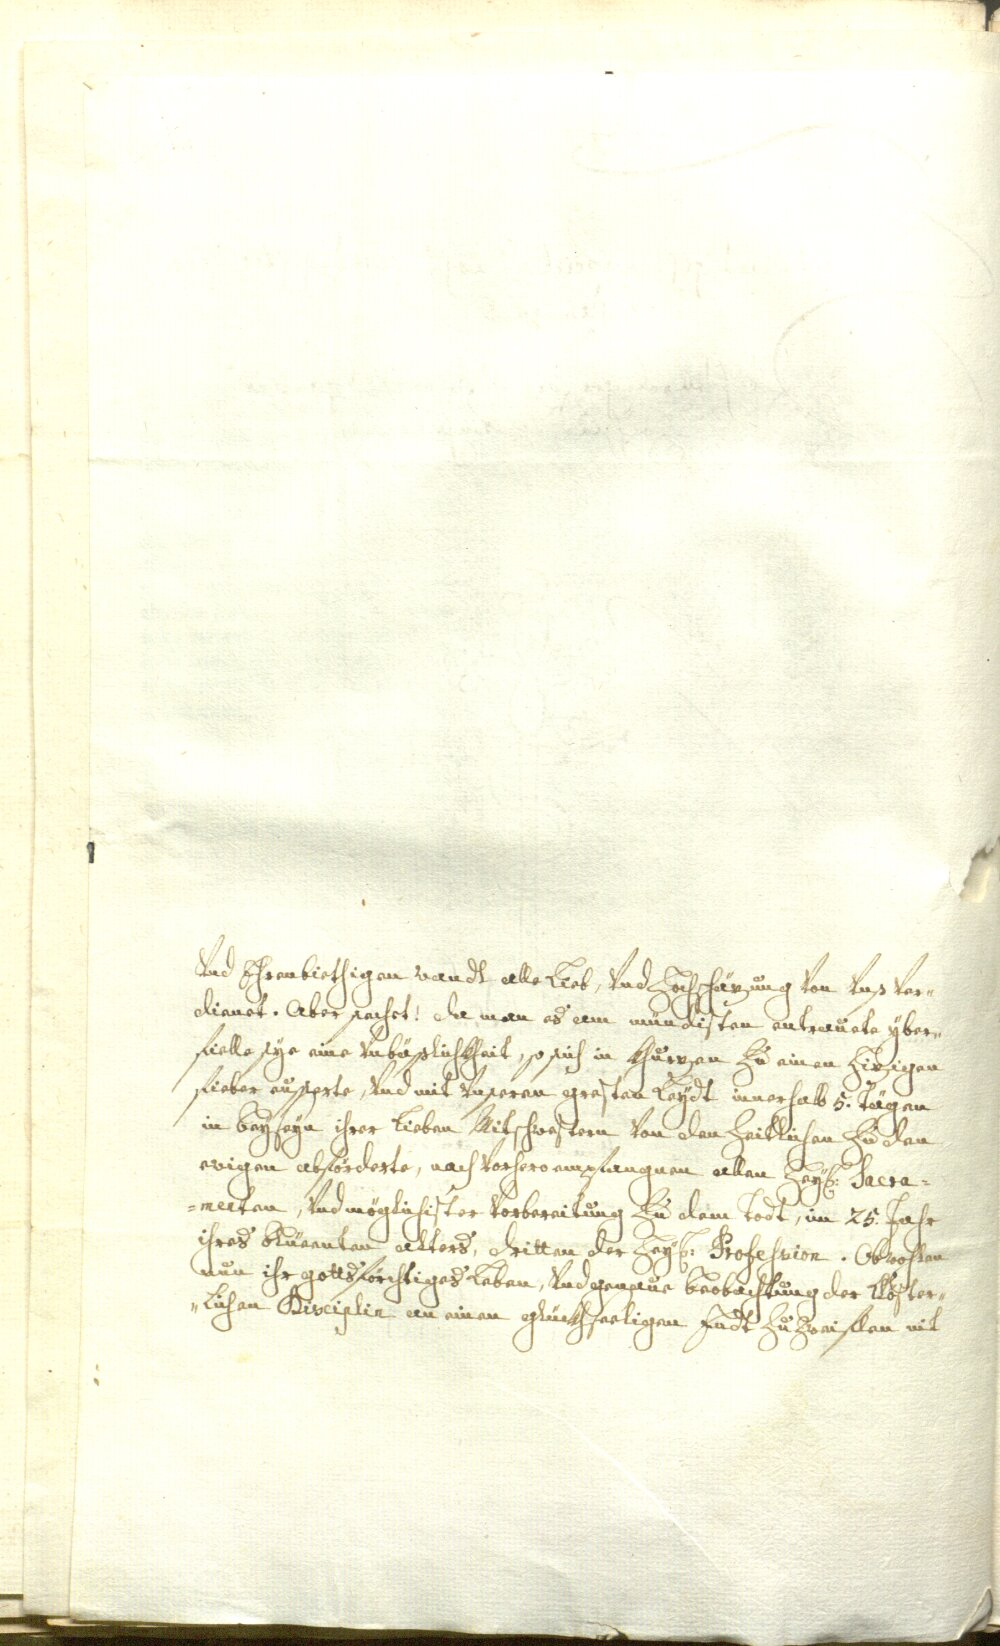 Und Ehrenbiethigen wandl alle Lieb, Und Hochschäzung Von Unß Ver-
dienet. Aber sechet! da man es am mündisten entrauete yber-
fielle sye eine Unbäßlichkheit, so sich in Kurzen Zu einen Hizigen
fieber eusserte, Und mit Unseren gresten Leydt innerhalb 5. Tägen
in beyseyn ihrer Lieben Mitschwestern Von den Zeitlichen Zu den
ewigen abforderte, nach Vorhero empfangnen allen Heyl: Sacra=
=menten, Und möglichister Vorbereitung Zu dem Todt, im 25. Jahr
ihres blüenten alters, dritten der Heyl: Profession. Obwohlen
nun ihr gottsförchtiges Leben, Und genaue beobachtung der Clöster-
lichen Disciplin an einen glückhseeligen Endt Zu Zweiflen nit